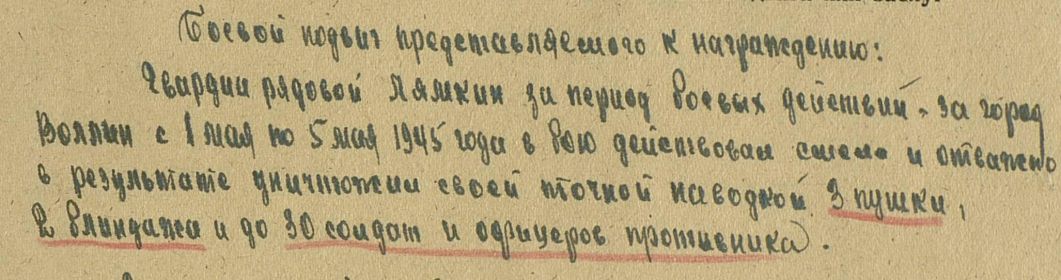 Боевой подвиг представляемого к награждению:
Гвардии рядовой Лямкин за период боевых действий - за город
Воллин с 1 мая по 5 мая 1945 года в бою действовал смело и отважно
в результате уничтожил своей точной наводкой 3 пушки,
2 блиндажа и до 30 солдат и офицеров противника.